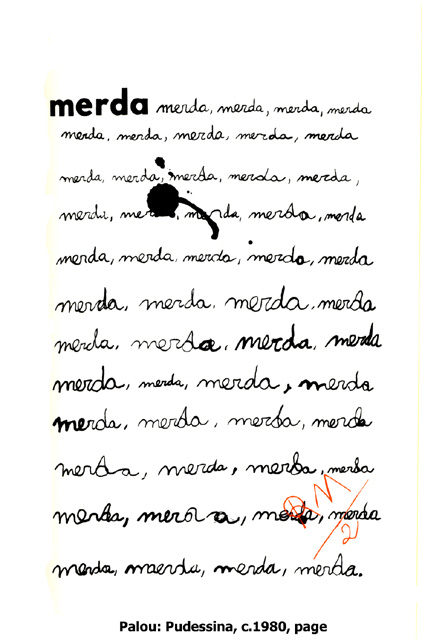 merda merda, merda, merda, merda
merda, merda, merda, merda, merda
merda, merda, merda, merda, merda,
merda, merda, merda, merda, merda
merda, merda, merda, merda, merda
merda, merda, merda, merda
merda, merda, merda, merda
merda, merda, merda, merda
merda, merda, merda, merda
merda, merda, merda, merda
merda, merda, merda, merda
merda, maerda, merda, merda.
AM/2
Palou: Pudessina, c.1980, page